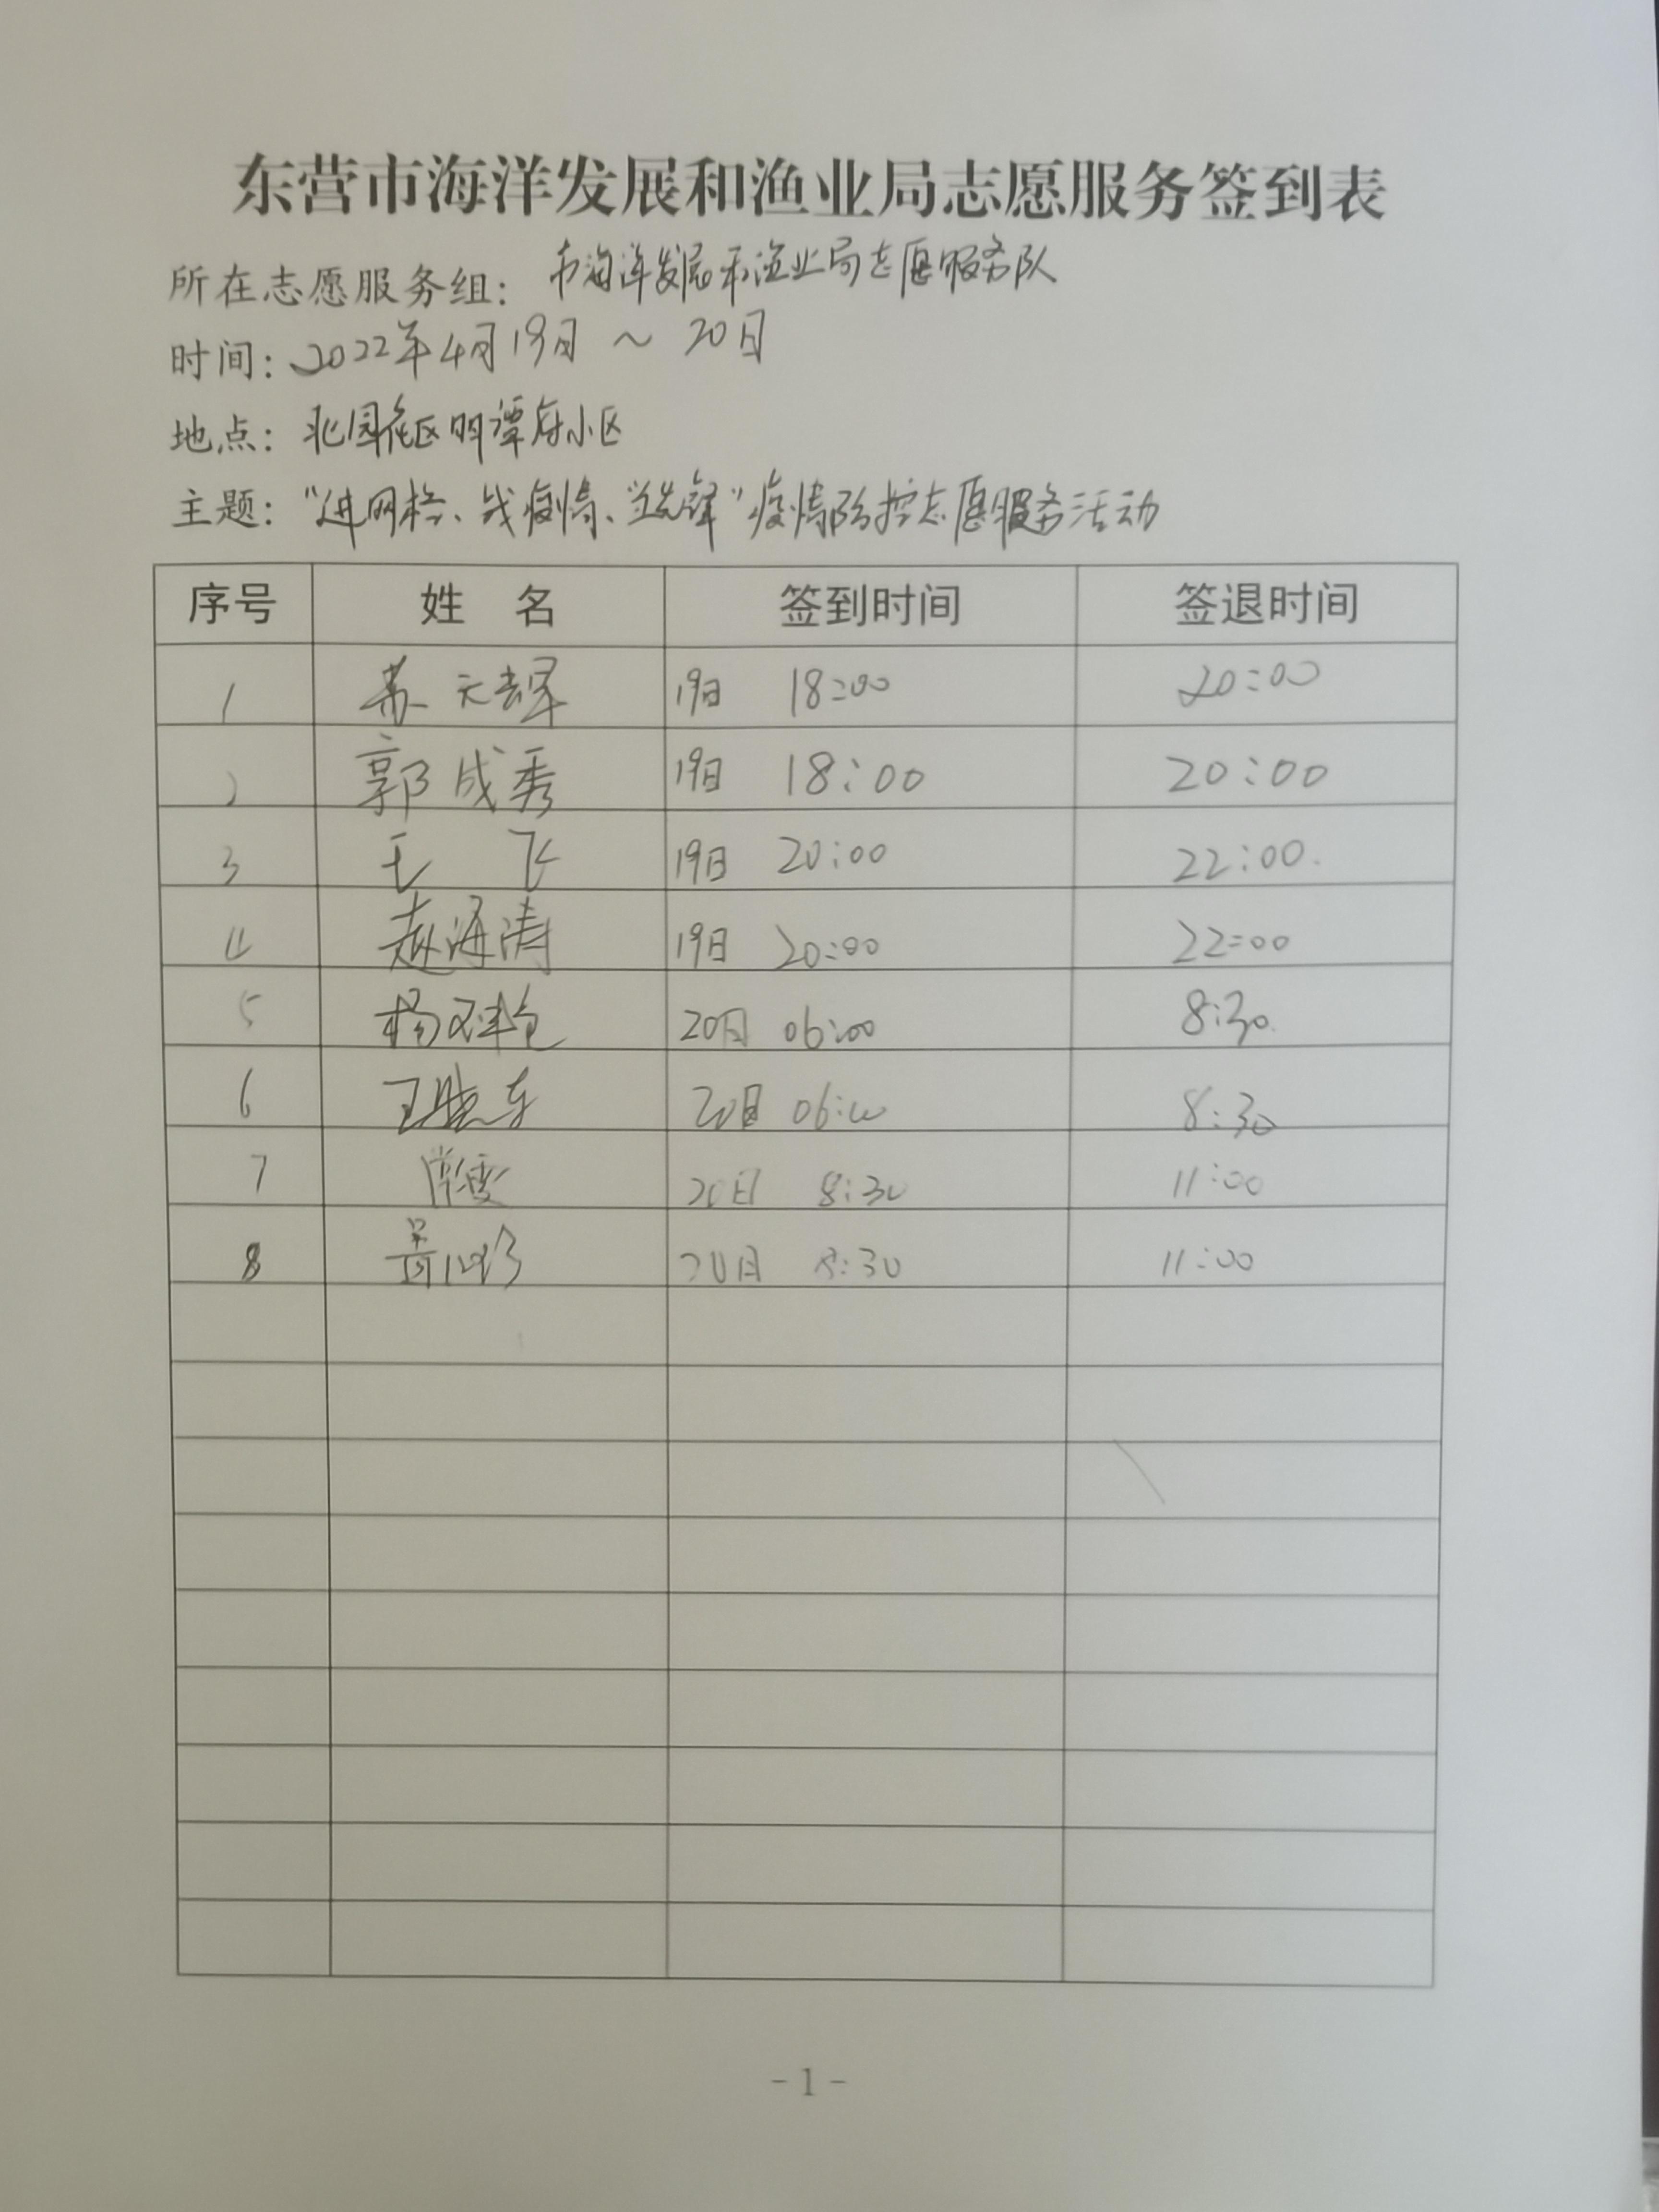 东营市海洋发展和渔业局志愿服务签到表
所在志愿服务组: 市海洋发展和渔业局志愿服务队
时间: 2022年4月19日 ~ 20日
地点: 北园社区明潭府小区
主题: "进网格、战疫情、当先锋"疫情防控志愿服务活动
序号 姓 名 签到时间 签退时间
1 苏元辉 19日 18:00 20:00
2 郭成秀 19日 18:00 20:00
3 王 飞 19日 20:00 22:00.
4 赵海涛 19日 20:00 22:00
5 杨 20日 06:00 8:30.
6 王晓东 20日 06:00 8:30
7 常雯 20日 8:30 11:00
8 20日 8:30 11:00
- 1 -